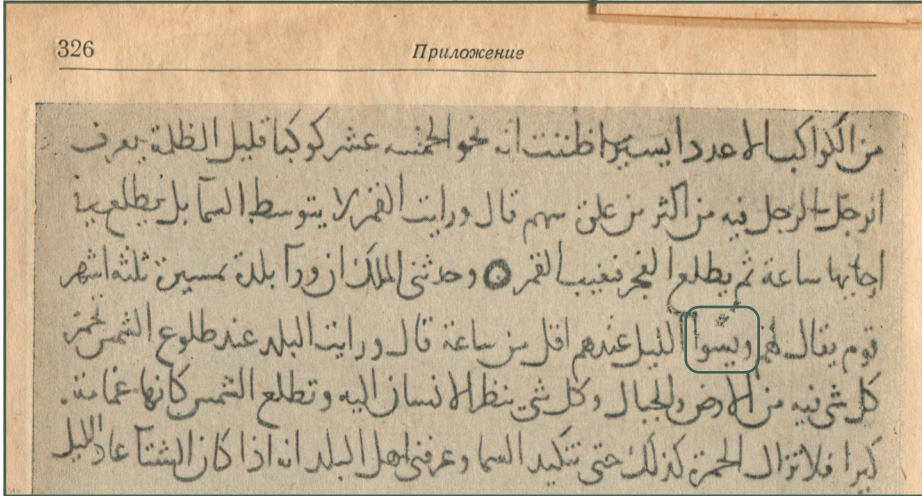 326
Приложение
من الكواكب الا عددا يسيرا ظننت انه نحو الخمسه عشر كوكبا قليل الظلمة يعرف
الرجل الرجل فيه من اكثر من علق سهم قال ورايت القمر لا يتوسط السما بل يطلع في
ساعة ثم يطلع الفجر فيغيب القمر وحدثني الملك ان ورآ بلده بمسيرة ثلثة اشهر
قوم يقال لهم ويسوا الليل عندهم اقل من ساعة قال ورايت البلد عند طلوع الشمس
كل شي فيه من الارض والجبال وكل شي ينظر الانسان اليه وتطلع الشمس كانها غمامة
كبرا فلا تزال الحمرة كذلك حتى تتكبد السما وعرفني اهل البلد انه اذا كان الشتآ عاد الليل